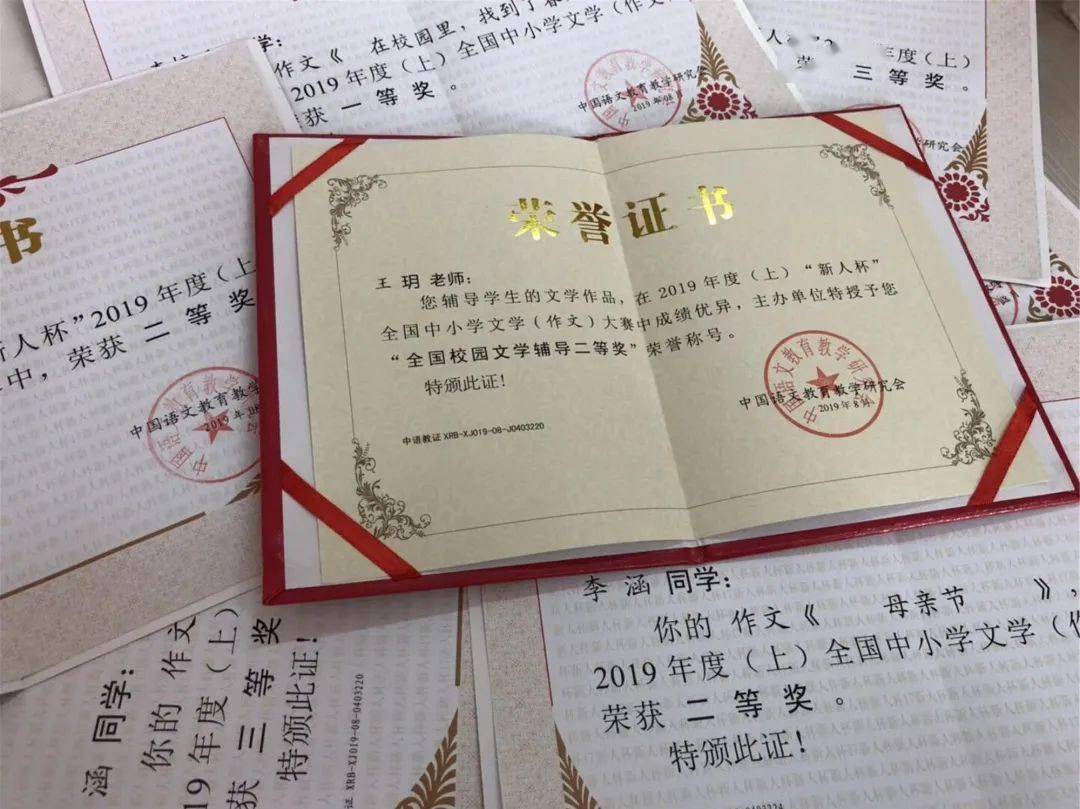 同学：
作文《 在校园里，找到了春
2019 年度（上）全国中小学文学（作文
荣获 一 等 奖 。
中国语文教育教学研究会
2019年08
年度（上）
三 等 奖 。
研究会
书
新人杯”2019 年度（上）
中，荣获 二 等 奖
中国语文教育教学
2019年08
荣誉证书
王 玥 老师：
您辅导学生的文学作品，在 2019 年度（上）“新人杯”
全国中小学文学（作文）大赛中成绩优异，主办单位特授予您
“全国校园文学辅导二等奖”荣誉称号。
特颁此证！
中国语文教育教学研究会
2019年8月
中语教证 XRB-XJ019-08-J0403220
涵 同学：
你的 作文
19 年度（上）
获 三 等 奖
特颁此证！
XRB-XJ019-08-0403220
李 涵 同学：
你的 作文《 母亲节 》，
2019 年度（上）全国中小学文学（作
荣获 二 等 奖 。
特颁此证！